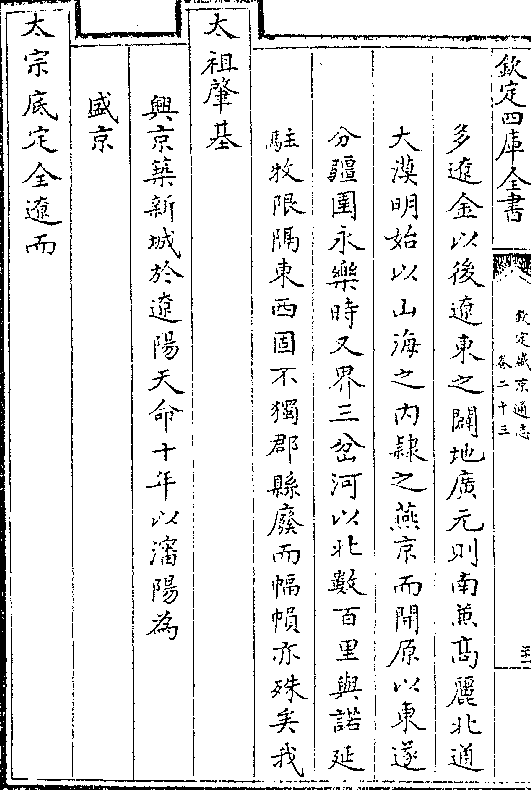 欽定四庫全書
欽定盛京通志
卷二十三
多遼金以後遼東之闢地廣元則南兼髙麗北通
大漠明始以山海之内隷之燕京而開原以東遂
分疆圉永樂時又界三岔河以北數百里與諾延
駐牧限隔東西固不獨郡縣廢而幅幀亦殊矣我
太祖肇基
興京築新城於遼陽天命十年以瀋陽為
盛京
太宗底定全遼而